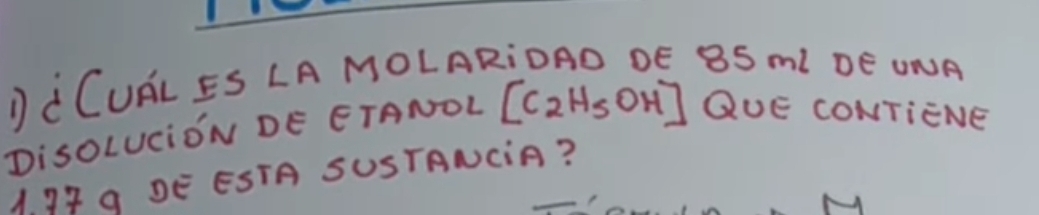 1) ¿CUÁL ES LA MOLARIDAD DE 85 ml DE UNA
DISOLUCIÓN DE ETANOL [C2H5OH] QUE CONTIENE
1.77 g DE ESTA SUSTANCIA?
M